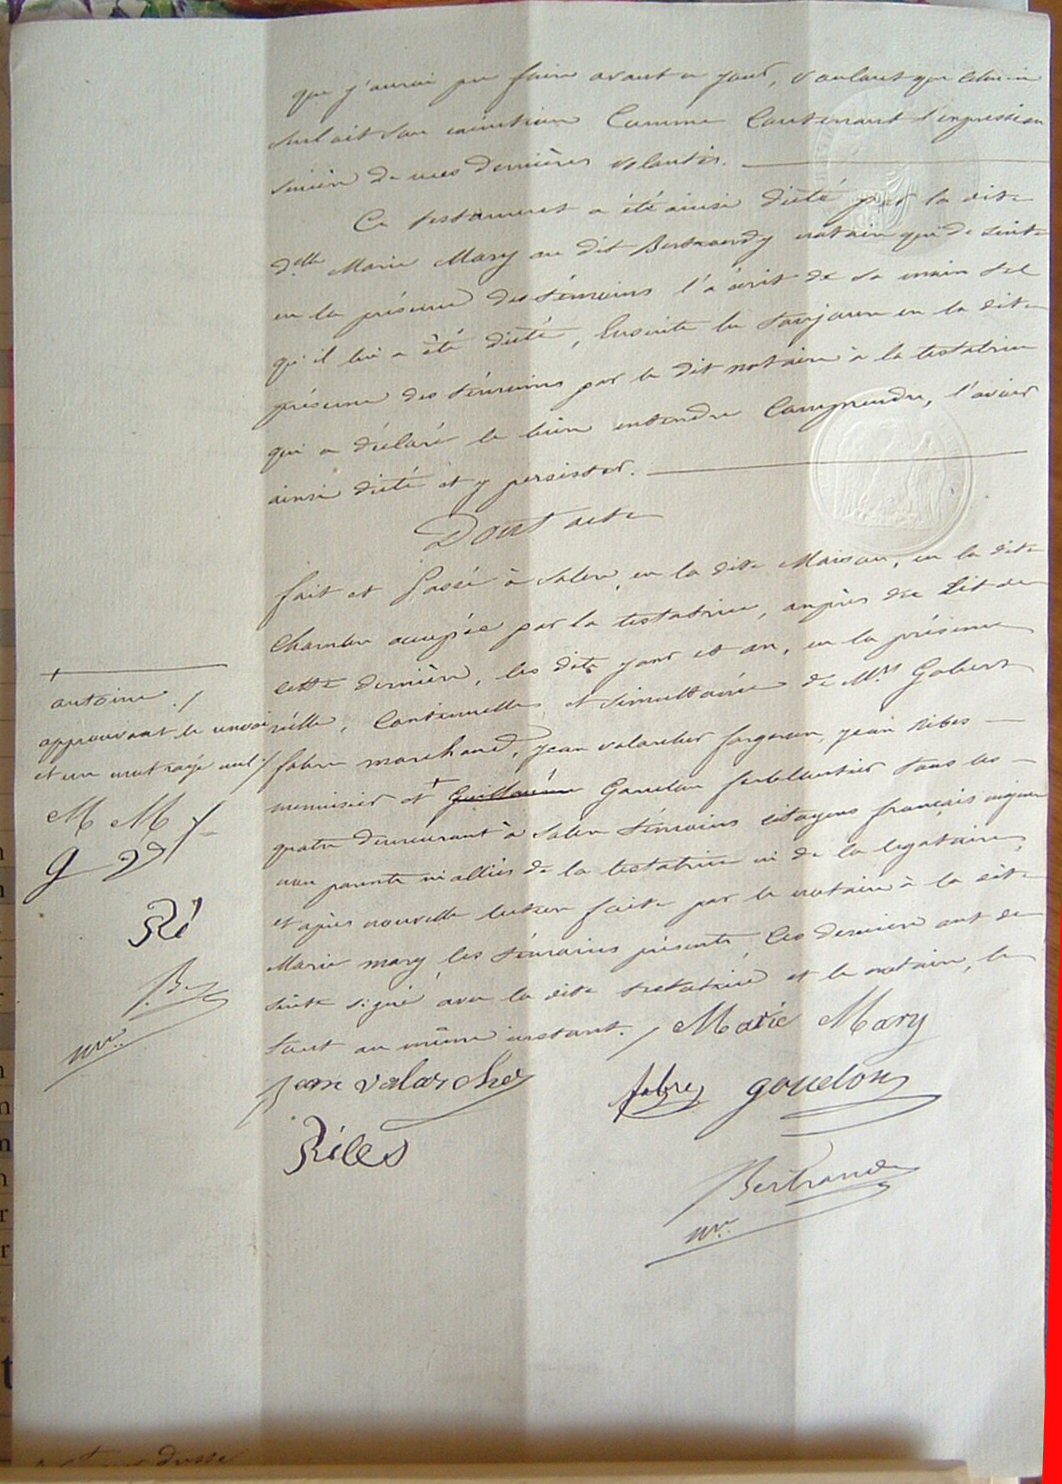 que j'aurai pu faire avant ce jour, voulant que celui-ci
seul ait son exécution Comme Contenant l'expression
sincère de mes dernières volontés.
Ce testament a été ainsi dicté par la dite
dlle Marie Mary au dit Bertrandy notaire qui de suite
en la présence des témoins l'a écrit de sa main tel
qu'il lui a été dicté, Ensuite lu toujours en la dite
présence des témoins par le dit notaire à la testatrice
qui a déclaré le bien entendre Comprendre, l'avoir
ainsi dicté et y persister.
Dont acte
fait et Passé à Salers, en la dite Maison, en la dite
Chambre occupée par la testatrice, auprès du Lit de
cette dernière, les dits jour et an, en la présence
réelle, Continuelle et Simultanée de Mrs Gabert
fabre marchand, jean valarcher forgeron, jean Ribes
menuisier et + Guillaume Goudon ferblantier tous les
quatre demeurant à Salers témoins citoyens français majeurs
non parents ni alliés de la testatrice ni de la légataire,
et après nouvelle lecture faite par le notaire à la dite
Marie mary, les témoins présents, Ces derniers ont de
suite signé avec la dite testatrice et le notaire, le
tout au même instant. / Marie Mary
Jean valarcher fabre goudon
Ribes
Bertrandy
nre.
+
antoine /
approuvant le renvoi
et un mot rayé nul /
M M
g
Ri
B
nre.